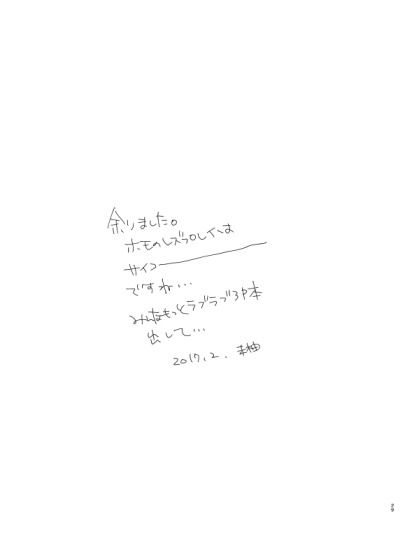 余りました。
ホモのレズプレイは
サイコーーーーーー
ですね…
みんなもっとラブラブ3P本
出して…
2017.2.
29